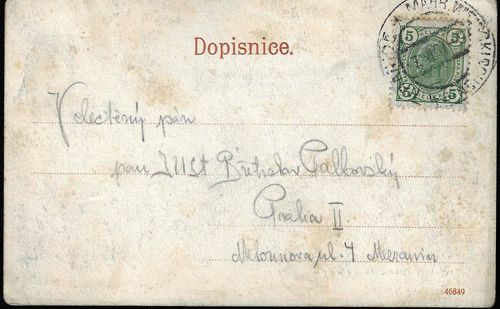 Dopisnice.
5 5
5 5
Velectěný pán
pan Břetislav Palkovský
Praha II
ul. 7 Mezanin
46849